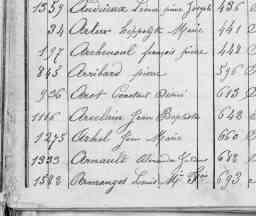 1359 Andrieux Léna pierre Joseph 436
34 Artur hippolyte Marie 441
197 Archenoul françois pierre 448
845 Arribard pierre 596
936 Arot Constant Désiré 613
1186 Arcelain Jean Baptiste 648
1275 Arhel Jean Marie 660
1333 Arnault
1582 Armanget Louis 693